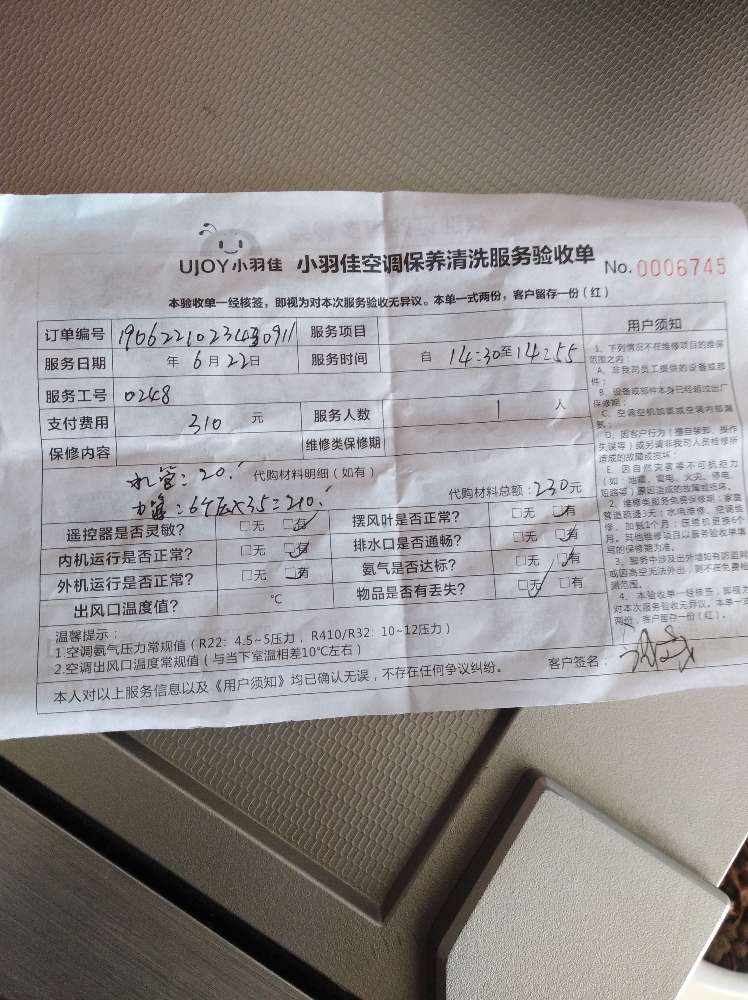 UJOY小羽佳 小羽佳空调保养清洗服务验收单 No.0006745
本验收单一经核签，即视为对本次服务验收无异议。本单一式两份，客户留存一份（红）
订单编号 服务项目
服务日期 年 6月22日 服务时间 自 14:30至14:55
服务工号 0248
支付费用 310 元 服务人数 1 人
保修内容 维修类保修期
水管：20.
代购材料明细（如有）
6 x35=210.
代购材料总额：230元
遥控器是否灵敏？ □无 □有 摆风叶是否正常？ □无 □有
内机运行是否正常？ □无 □有 排水口是否通畅？ □无 □有
外机运行是否正常？ □无 □有 氨气是否达标？ □无 □有
出风口温度值？ ℃ 物品是否有丢失？ □无 □有
温馨提示：
1.空调氨气压力常规值（R22：4.5~5压力，R410/R32：10~12压力）
2.空调出风口温度常规值（与当下室温相差10℃左右）
客户签名：
本人对以上服务信息以及《用户须知》均已确认无误，不存在任何争议纠纷。
用户须知
1、下列情况不在维修项目的维保
范围之内：
A、非我司员工提供的设备或部
件；
B、设备或部件本身已经超过出厂
保修期；
C、空调空机加氨或空调内部漏
氨；
D、因客户行为（擅自装卸、操作
失误等）或另请非我司人员检修所
造成的故障或损坏；
E、因自然灾害等不可抗拒力
（如：地震、雷电、火灾、停电、
短路等）原因造成的故障或损坏。
2、维修类服务免费保修期：家庭
管道疏通3天；水电维修、空调维
修、加氨1个月；压缩机更换6个
月。其他维修项目以服务验收单填
写的保修期为准。
3、服务中涉及出外墙如有防盗网
或因高空无法外出，则不在免费检
测范围。
4、本验收单一经核签，即视为
对本次服务验收无异议。本单一式
两份，客户留存一份（红）。